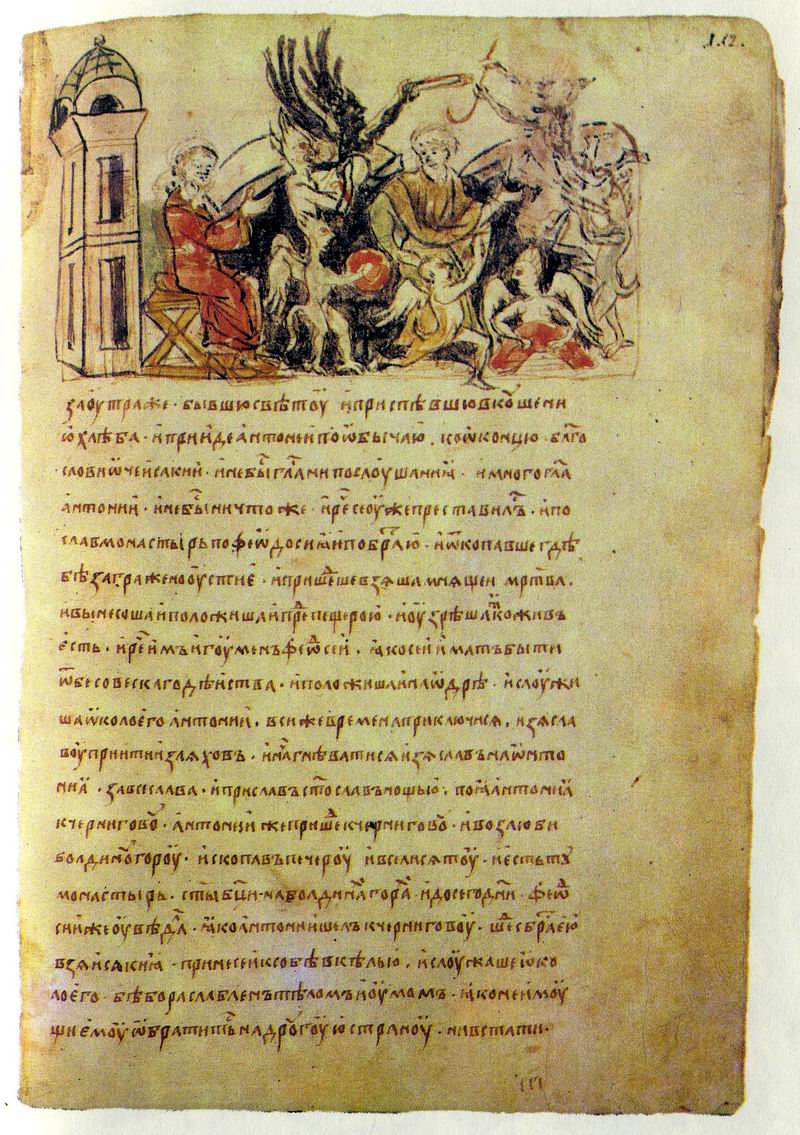 злоу траже · бывшю свѣтоу и приспѣвшю вкоушени
ѿ хлѣба · и прииде антонеи по ѡбычаю . ко ѡконцю · бл҃го
слови ѿче исакий · и не быⷭ гл҃а ни послоушаниꙗ · и много гл҃а
антоний · и не быⷭ ничто же · и реⷱ се оуже преставилъⷭ · и по
слав монастырь по феѡдосиꙗ и по братⸯю · и ѿкопавше где
бѣ заграженооустие · и пришеⷣше взяша мнящеи мртва .
и вынесоша и положиша и преⷣ пещерою · и оузрѣша ꙗко жив
есть · и реⷱ имъ игоуменъ феѡⷣсеи . ꙗко се и имать быти
ѿ бесовескаго дѣиства · и положиша и на ѡдрѣ · и слоужи
ша ѡколо его антонии . в си же времена приключися . изясла
воу приити из ляховъ · и наⷱ гнѣватися изяславъ на ѡнто
ниꙗ · за всеслава · и приславъ ст҃ославъ ношью . поꙗ антониꙗ
к черниговоⷹ · антоний же пришеⷣ к черниговоⷹ · и возлюби
болдиноⷹ гороу · ископавъ печероу и вселися тоу · и есть тоⷹ
монастырь · ст҃ыꙗ бц҃и · на болдинаⷯ гораⷯ и до сего дн҃и · феѡⷣ
сий же оувѣдаⷡ · ꙗко антонии шелъ к черниговоу · шеⷣ с братⸯею
взя исакиꙗ · и принесе и к собѣ в кѣлью . и слоужаше ѡко
ло его · бѣ бо раславленъ тѣломъ и оумомъ · ꙗко не имоу
щи емоу ѡбратитьⷭ на дрⷹгоую страноу · ни встати ·